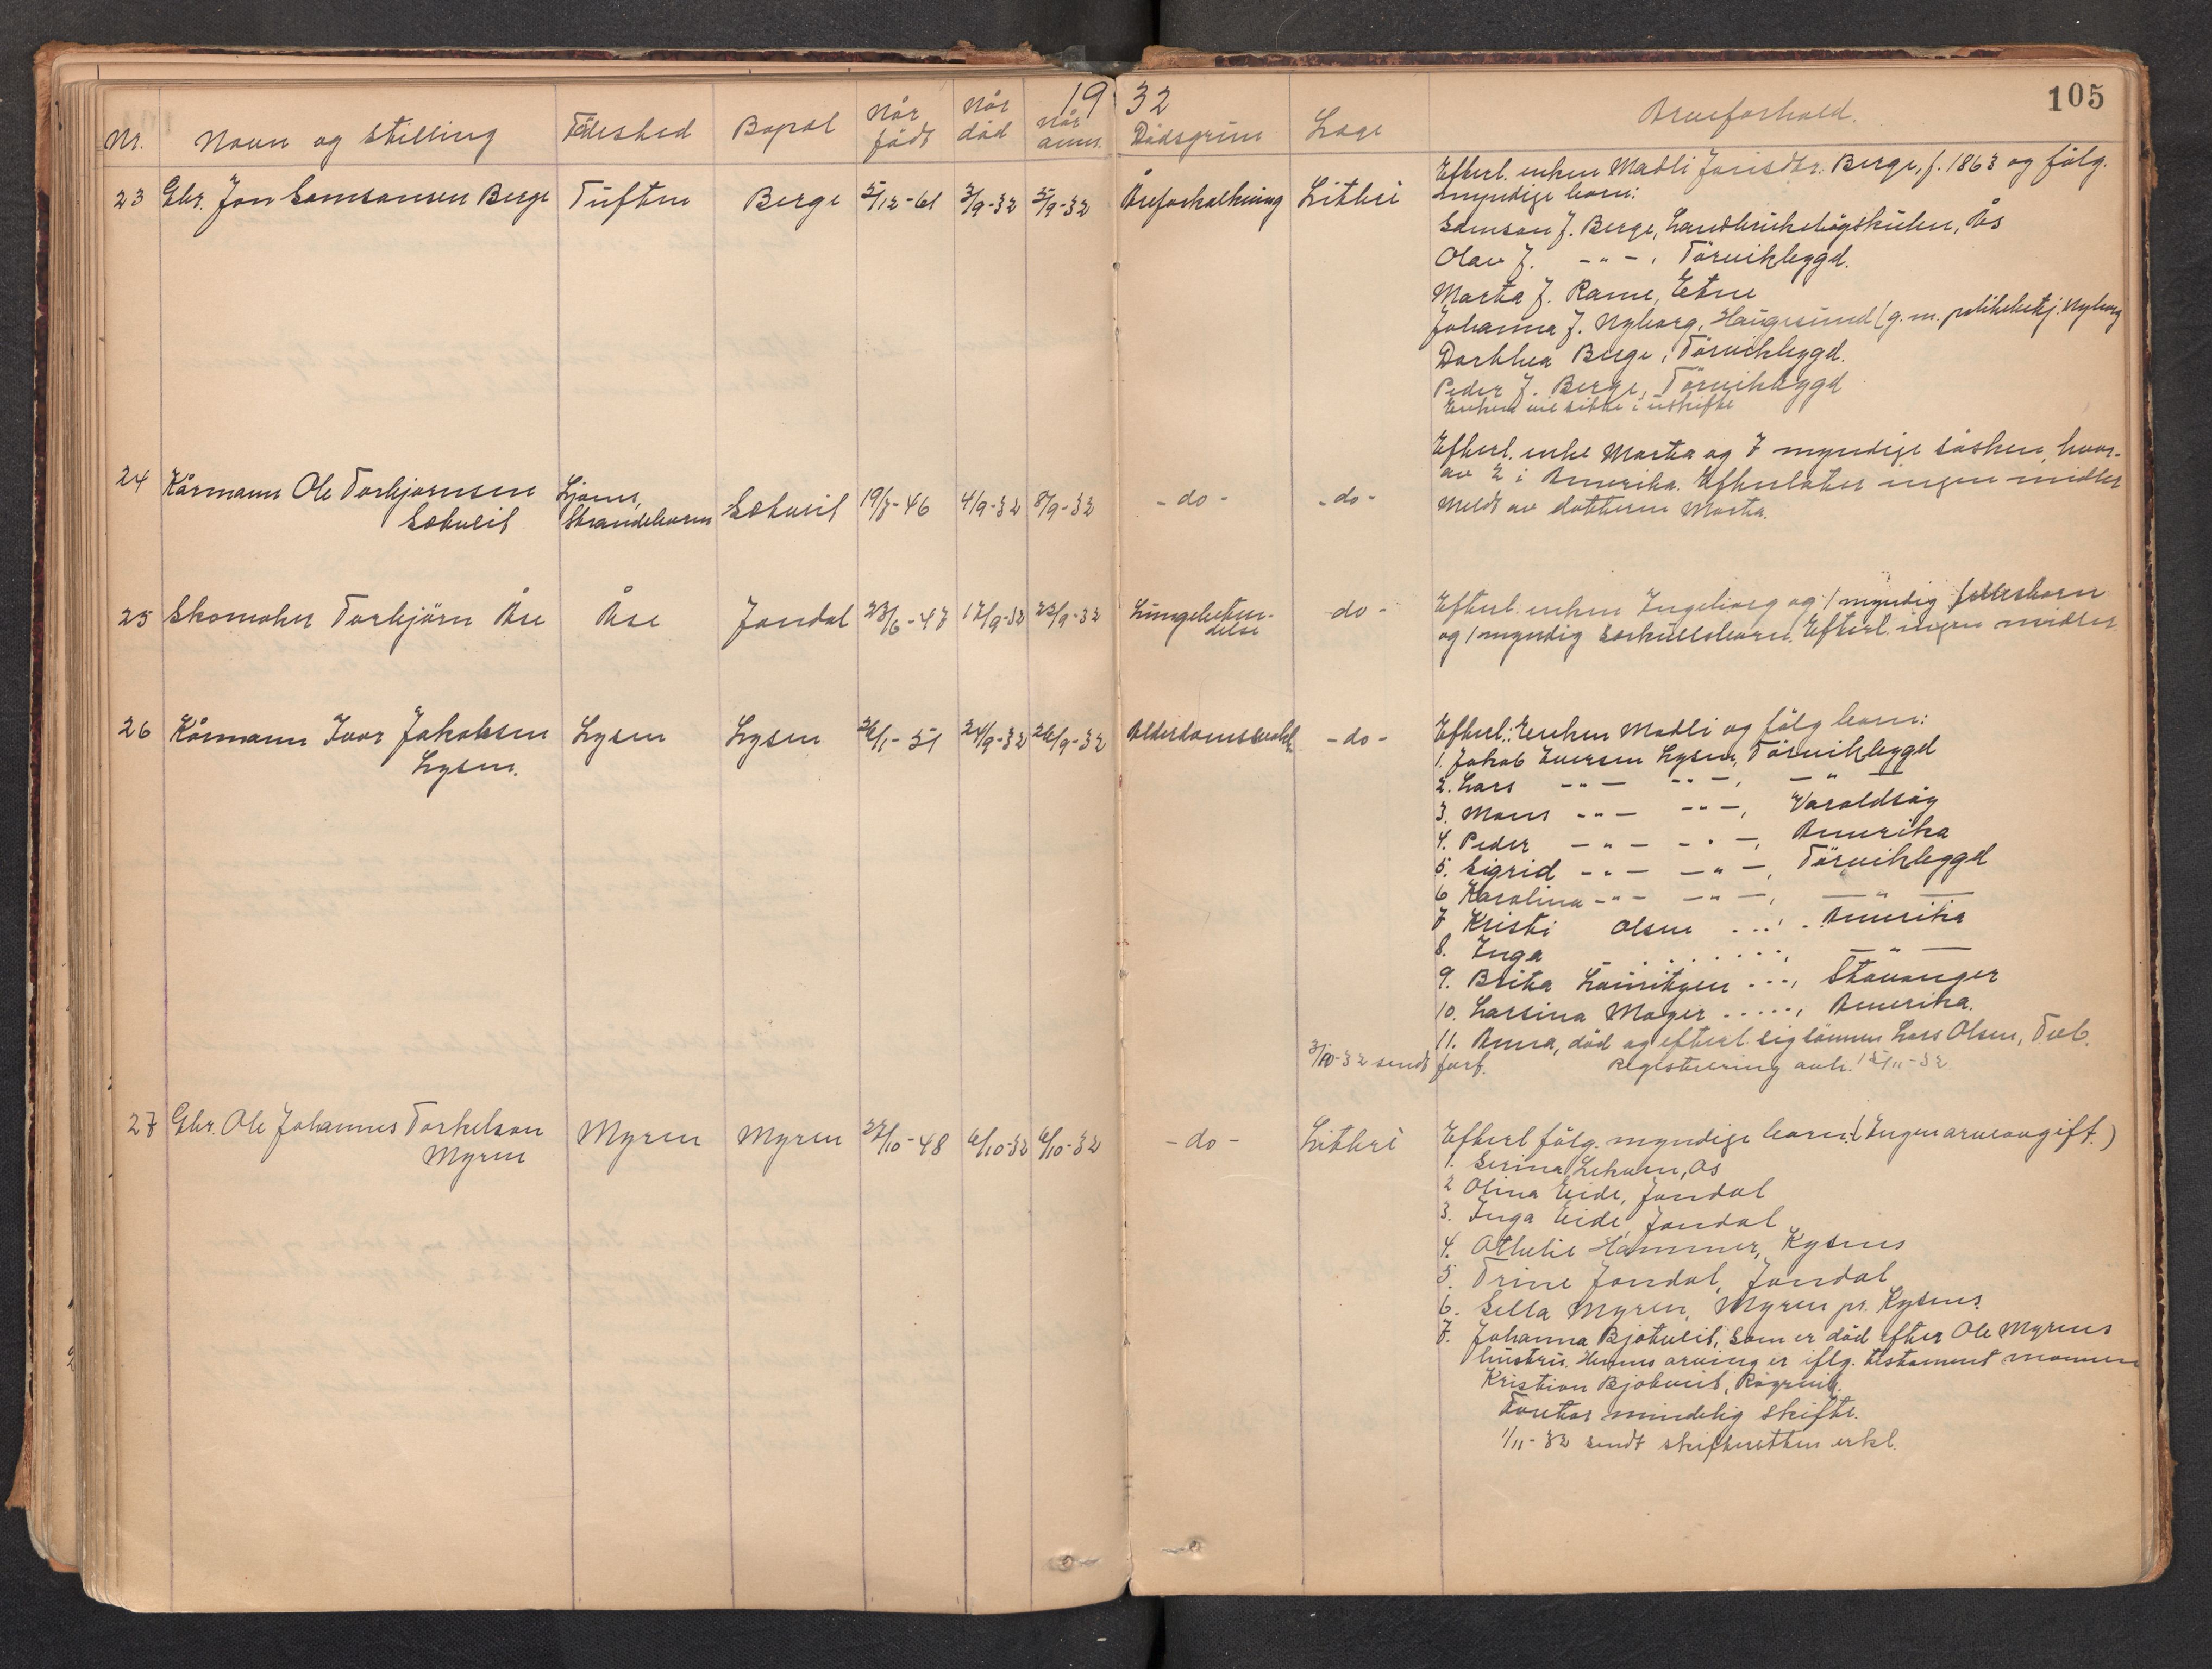 1932
105
Nr. Navn og stilling Fødested Bopæl Når født Når død Når anm. Dødsgrun Læge Arveforhold.
23 Gbr. Jon Samsonsen Berge Tuften Berge 5/12-61 3/9-32 5/9-32 Åreforkalkning Litteri
Efterl. enken Madli Jonisdtr. Berge, f. 1863 og fölg.
myndige born:
Samson J. Berge, Landbrukshögskulen, Ås
Olav J. -"-, Törvikbygd.
Marta J. Ranne, Etne
Johanna J. Nyborg, Haugesund (g.m. politibetj. Nyborg
Dorthea Berge, Törvikbygd.
Peder J. Berge, Törvikbygd
Enken vil sitte i uskifte
24 Kårmann Ole Torbjørnsen
Sætveit
Ljones,
Strandebarm
Sætveit 19/7-46 4/9-32 8/9-32 -do- -do-
Efterl. enke Marta og 7 myndige søsken, hvor-
av 2 i Amerika. Efterlater ingen midler
Meldt av datteren Marta.
25 Skomaker Torbjörn Åse Åse Jondal 23/6-47 17/9-32 22/9-32 Lungebeten-
delse
do-
Efterl. enken Ingeborg og 1 myndig fellesbarn
og 1 myndig særkullsbarn. Efterl. ingen midler
26 Kårmann Ivar Jakobsen
Lysen.
Lysen Lysen 26/1-51 24/9-32 26/9-32 Alderdomssvakh. -do-
Efterl.: Enken Madli og fölg born:
1. Jakob Iversen Lysen, Törvikbygd
2. Lars -"- -"-, -"-
3. Mons -"- -"-, Varaldsöy
4. Peder -"- -"-, Amerika
5. Sigrid -"- -"-, Törvikbygd
6 Karolina -"- -"-, -"-
7 Kristi Olsen ...., Amerika
8. Inga ......., -"-
9. Brita Lauritzen ..., Stavanger
10. Larsina Mager ....., Amerika.
11. Anna, död og efterl. sig sönnen Lars Olsen, Tvb.
3/10-32 sendt forf. Registrering avh. 15/11-32
27 Gbr. Ole Johannes Torkelson
Myren
Myren Myren 27/10-48 6/10-32 6/10-32 -do- Litteri
Efterl fölg. myndige born: (Ingen arveavgift.)
1. Serina Lekven, Os
2 Olina Eide, Jondal
3. Inga Eide Jondal
4. Othelie Hammer, Kysnes
5. Trine Jondal, Jondal
6. Sella Myren, Myren pr. Kysnes.
7. Johanna Bjotveit, som er död efter Ole Myrens
hustru. Hennes arving er iflg. testament mannen
Kristian Bjotveit,
Foretar mindelig skifte.
1/11-32 sendt skifteretten erkl.